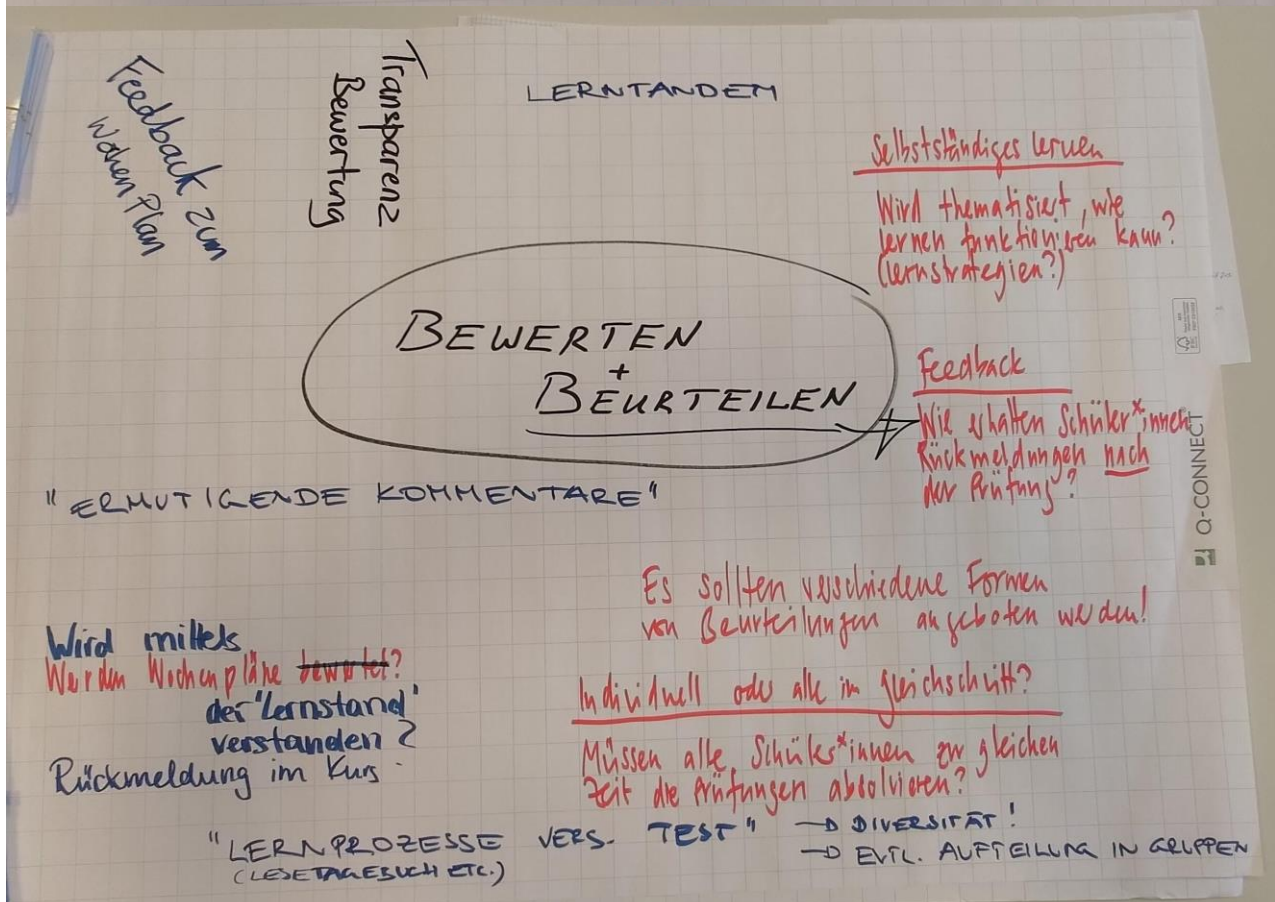 Feedback zum
Wochen Plan
Transparenz
Bewertung
LERNTANDEM
Selbstständiges lernen
Wird thematisiert, wie
lernen funktionieren kann?
(lernstrategien?)
BEWERTEN
+
BEURTEILEN
Feedback
Wie erhalten Schüler*innen
Rückmeldungen nach
der Prüfung?
Q-CONNECT
"ERMUTIGENDE KOMMENTARE"
Es sollten verschiedene Formen
von Beurteilungen angeboten werden!
Wird mittels
Werden Wochenpläne bewertet?
der "Lernstand"
verstanden?
Rückmeldung im Kurs
Individuell oder alle im gleichschritt?
Müssen alle Schüler*innen zur gleichen
Zeit die Prüfungen absolvieren?
"LERNPROZESSE VERS. TEST" → DIVERSITÄT!
(LESETAGEBUCH ETC.) → EVTL. AUFTEILUNG IN GRUPPEN